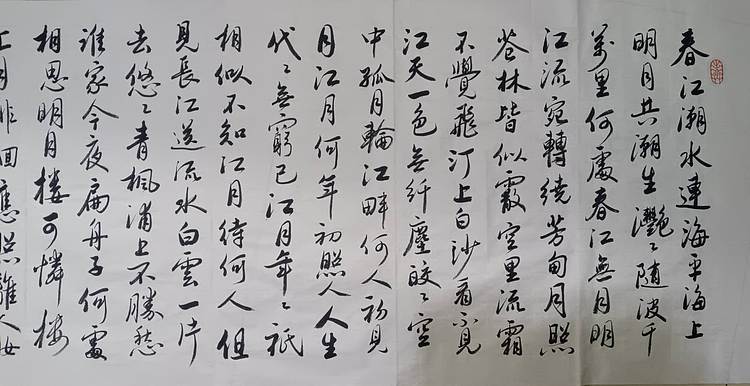 春江潮水連海平海上
明月共潮生灔〻随波千
萬里何處春江無月明
江流宛轉繞芳甸月照
花林皆似霰空里流霜
不覺飛汀上白沙看不見
江天一色無纤塵皎〻空
中孤月輪江畔何人初見
月江月何年初照人人生
代〻無窮已江月年〻祇
相似不知江月待何人但
見長江送流水白雲一片
去悠〻青楓浦上不勝愁
誰家今夜扁舟子何處
相思明月樓可憐樓
上月徘徊應照離人妝